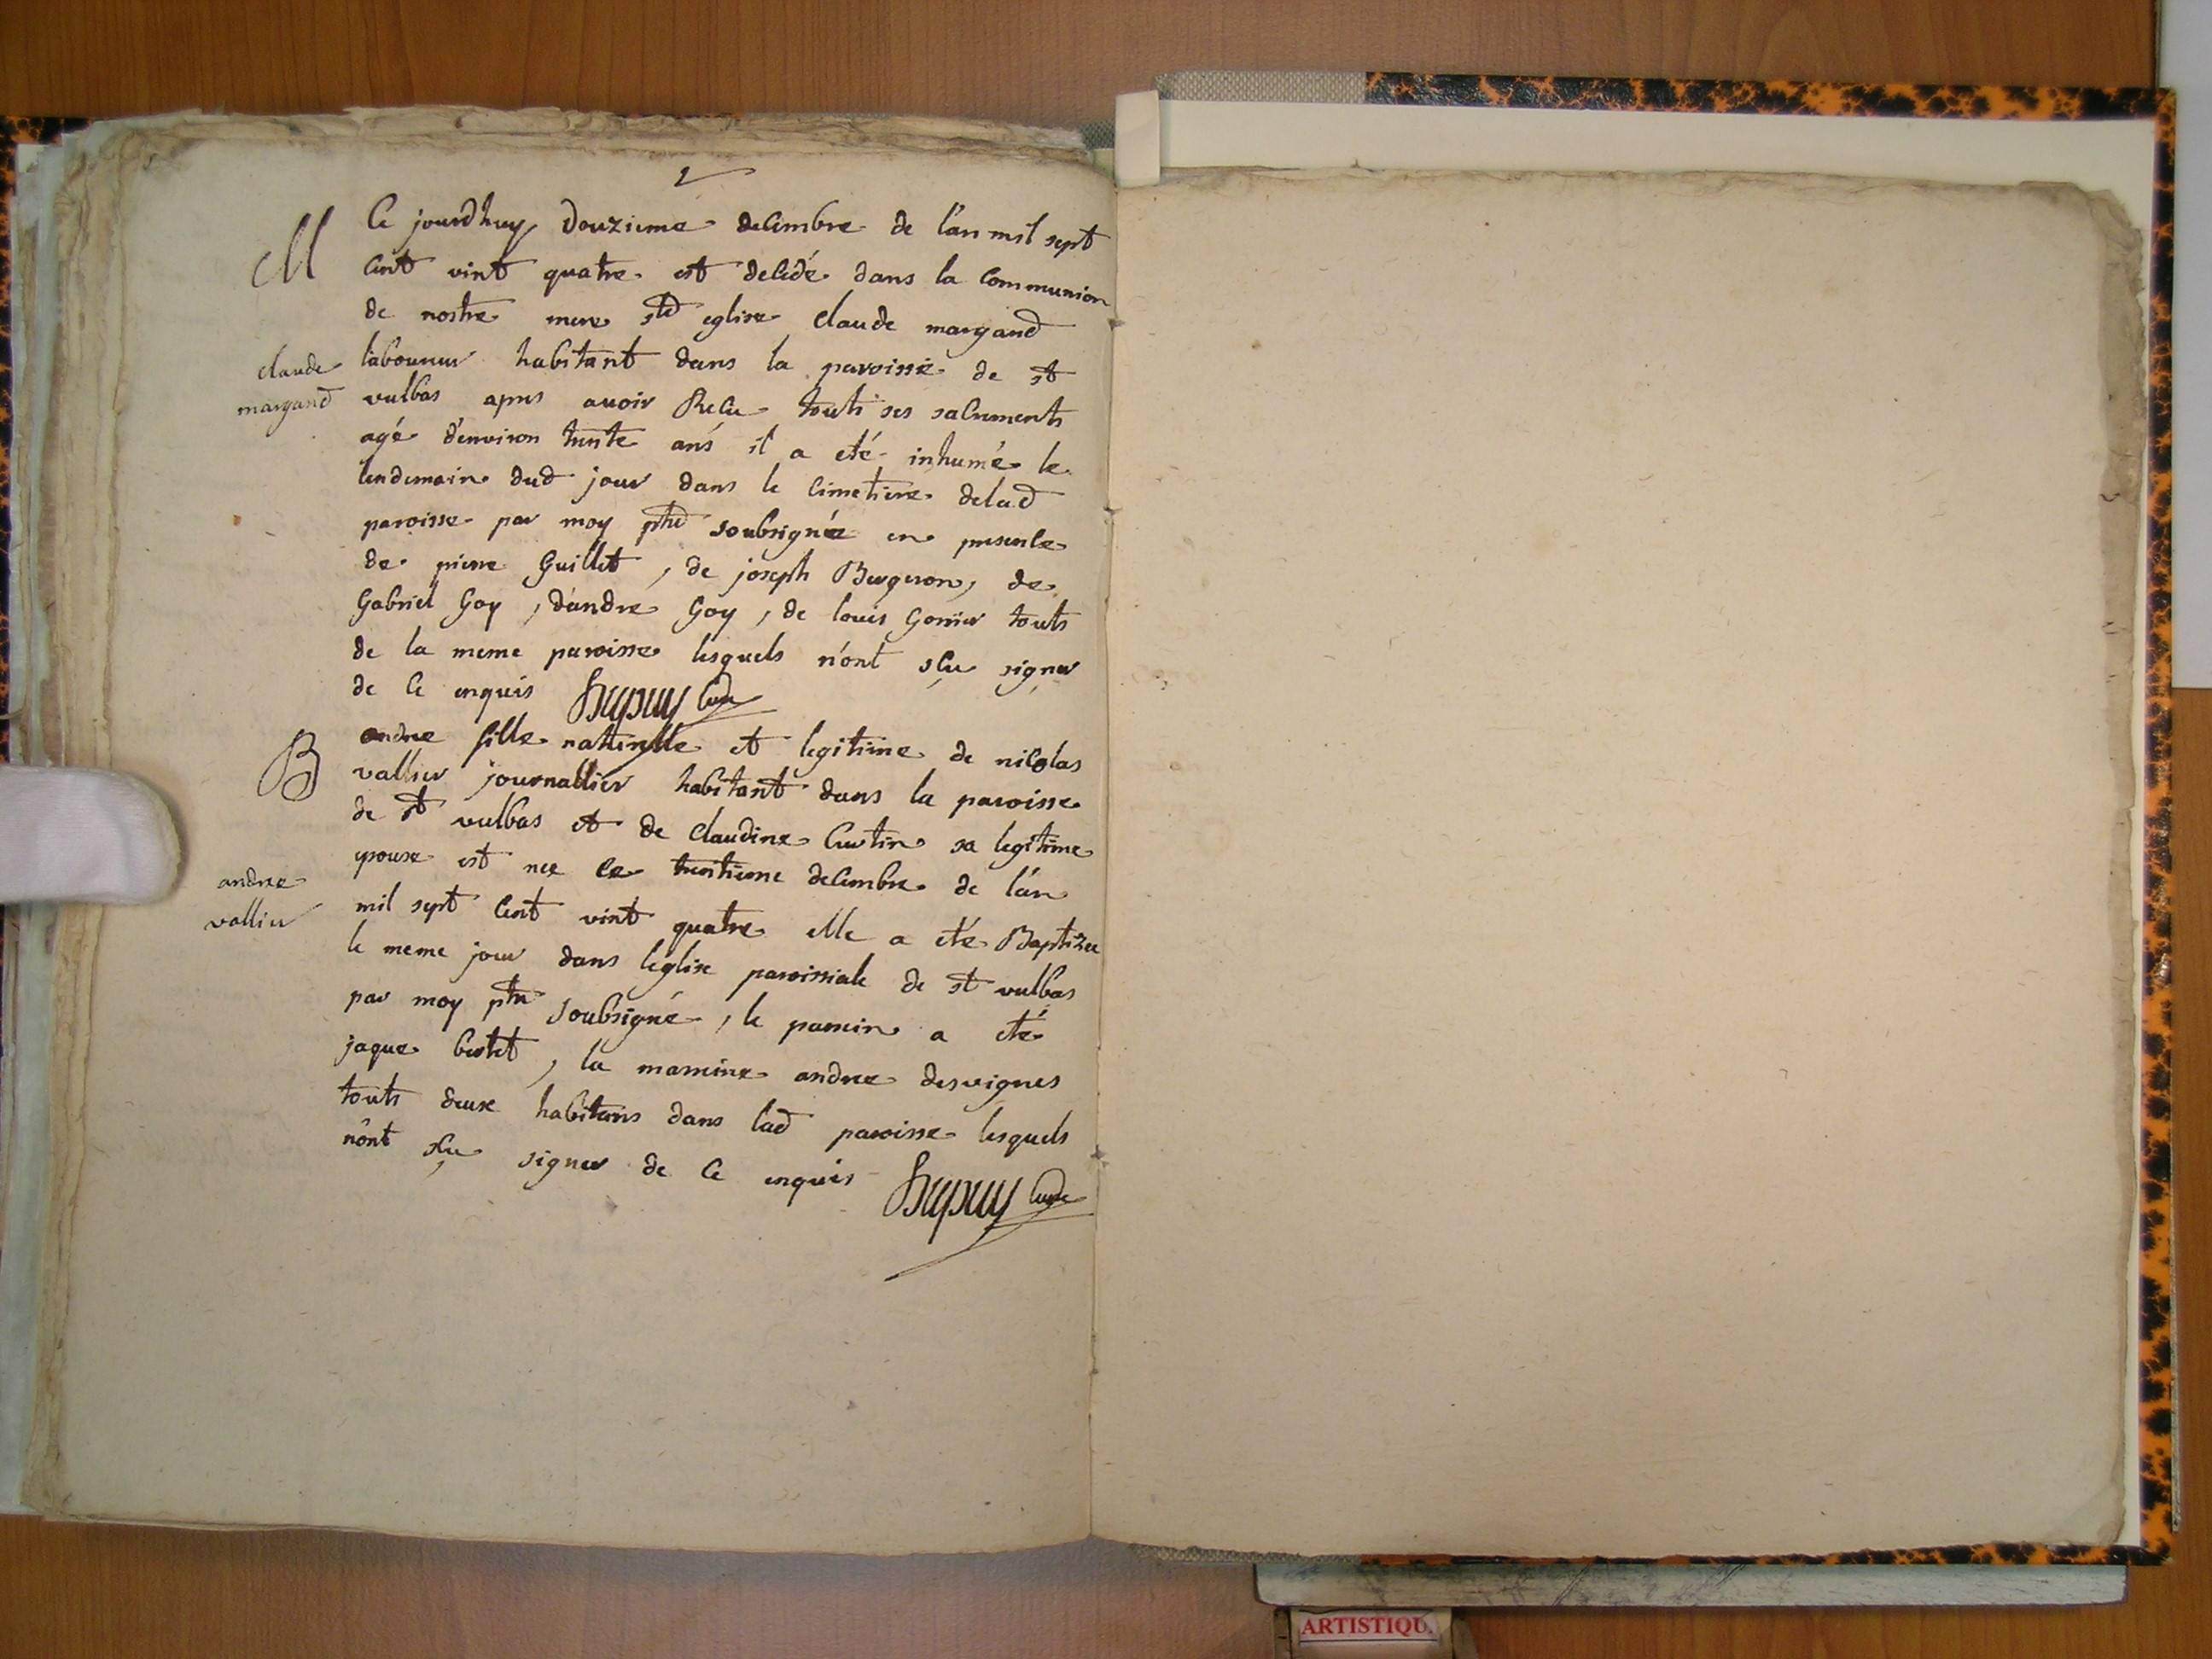 2
M
Ce jourdhuy douzieme decembre de lán mil sept
cent vint quatre est decedé dans la communion
de nostre mere ste eglise claude margand
laboureur habitant dans la paroisse de st
claude
margand
vulbas apres auoir Recu touts ses sacrements
agé d'environ trente ans il a eté inhumé le
lendemain dud jour dans le cimetiere delad
paroisse par moy ptre soubsignée en presence
de pierre Guillet, de joseph Bergeron, de
Gabriel Goy, dándre Goy, de louis Gonier touts
de la meme paroisse lesquels nónt sçu signer
de ce enquis Dupuy Curé
B
andree fille naturelle et legitime de nicolas
vallier journallier habitant dans la paroisse
de st vulbas et de claudine Curtin sa legitime
epouse est nee le trentieme decembre de lán
andree
vallier
mil sept cent vint quatre elle a eté Baptizee
le meme jour dans léglise paroissiale de st vulbas
par moy ptre soubsigné, le parrein a eté
jaque bertet, la marreine andree desvignes
touts deux habitans dans lad paroisse lesquels
nónt sçu signer de ce enquis Dupuy Curé
ARTISTIQU